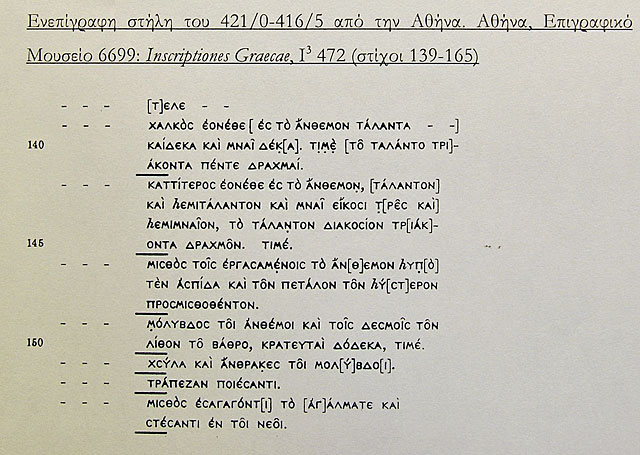 Ενεπίγραφη στήλη του 421/0-416/5 από την Αθήνα. Αθήνα, Επιγραφικό
Μουσείο 6699: Inscriptiones Graecae, I³ 472 (στίχοι 139-165)
- - - [Τ]ΕΛΕ - -
- - - ΧΑΛΚὸC ἐΟΝέΘΕ [ ἐC Τὸ ἌΝΘΕΜΟΝ ΤΆΛΑΝΤΑ - -]
140 ΚΑΊΔΕΚΑ ΚΑὶ ΜΝΑῖ ΔέΚ[Α]. ΤΙΜὲ [ΤΟ͂ ΤΑΛΆΝΤΟ ΤΡΙ]-
ΆΚΟΝΤΑ ΠέΝΤΕ ΔΡΑΧΜΑΊ.
- - - ΚΑΤΤΊΤΕΡΟC ἐΟΝέΘΕ ἐC Τὸ ἌΝΘΕΜΟΝ, [ΤΆΛΑΝΤΟΝ]
ΚΑὶ hΕΜΙΤΆΛΑΝΤΟΝ ΚΑὶ ΜΝΑῖ ΕἴΚΟCΙ Τ[ΡΕ͂C ΚΑὶ]
hΕΜΙΜΝΑῖΟΝ, Τὸ ΤΆΛΑΝΤΟΝ ΔΙΑΚΟCΊΟΝ ΤΡ[ΙΆΚ]-
145 ΟΝΤΑ ΔΡΑΧΜΟ͂Ν. ΤΙΜέ.
- - - ΜΙCΘὸC ΤΟῖC ἐΡΓΑCΑΜέΝΟΙC Τὸ ἌΝ[Θ]ΕΜΟΝ hΥΠ[ὸ]
ΤὲΝ ἀCΠΊΔΑ ΚΑὶ ΤΟ͂Ν ΠΕΤΆΛΟΝ ΤΟ͂Ν hΎ[CΤ]ΕΡΟΝ
ΠΡΟCΜΙCΘΟΘέΝΤΟΝ.
- - - ΜΌΛΥΒΔΟC ΤΟ͂Ι ἀΝΘέΜΟΙ ΚΑὶ ΤΟῖC ΔΕCΜΟῖC ΤΟ͂Ν
150 ΛΊΘΟΝ ΤΟ͂ ΒΆΘΡΟ, ΚΡΑΤΕΥΤΑὶ ΔΌΔΕΚΑ, ΤΙΜέ.
- - - ΧCΎΛΑ ΚΑὶ ἌΝΘΡΑΚΕC ΤΟ͂Ι ΜΟΛ[Ύ]ΒΔΟ[Ι].
- - - ΤΡΆΠΕΖΑΝ ΠΟΙέCΑΝΤΙ.
- - - ΜΙCΘὸC ἐCΑΓΑΓΌΝΤ[Ι] Τὸ [ἀΓ]ΆΛΜΑΤΕ ΚΑὶ
CΤέCΑΝΤΙ ἐΝ ΤΟ͂Ι ΝΕΟ͂Ι.